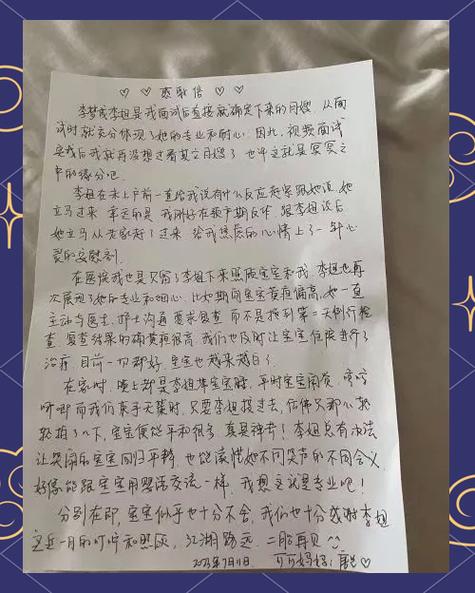 ♡ ♡ 感谢信 ♡ ♡
李梦 李姐是我面试后直接就确定下来的月嫂，从面
试时就充分体现了她的专业和耐心，因此，视频面试
完我后我就再没想过看其它月嫂了，也许这就是冥冥之
中的缘分吧。
李姐在未上户前一直给我说有什么反应赶紧跟她说，她
立马过来，幸运的是，我刚好在预产期反应，跟李姐说后
她立马从老家赶了过来，给我焦虑的心情上了一针心
灵的安慰剂。
在医院我也是只留了李姐下来照顾宝宝和我，李姐也再
次展现了她的专业和细心，比如期间宝宝黄疸偏高，她一直
主动与医生、护士沟通要求复查，而不是拖到第二天例行检
查，复查结果的确黄疸很高，我们也及时让宝宝住院进行了
治疗，目前一切都好，宝宝也越来越白了。
在家时，晚上都是李姐哄宝宝睡，平时宝宝闹觉，哼哼
唧唧而我们束手无策时，只要李姐接过去，信佛又耐心轻
轻拍了几下，宝宝便能平和很多，真是神奇！李姐总有办法
让哭闹的宝宝回归平静，也能读懂她不同哭声的不同含义，
好像能跟宝宝用婴语交流一样，我想这就是专业吧！
分别在即，宝宝似乎也十分不舍，我们也十分感谢李姐
这近一月的叮咛和照顾，江湖路远，二胎再见
2023年7月11日 可可妈妈：唐 ♡